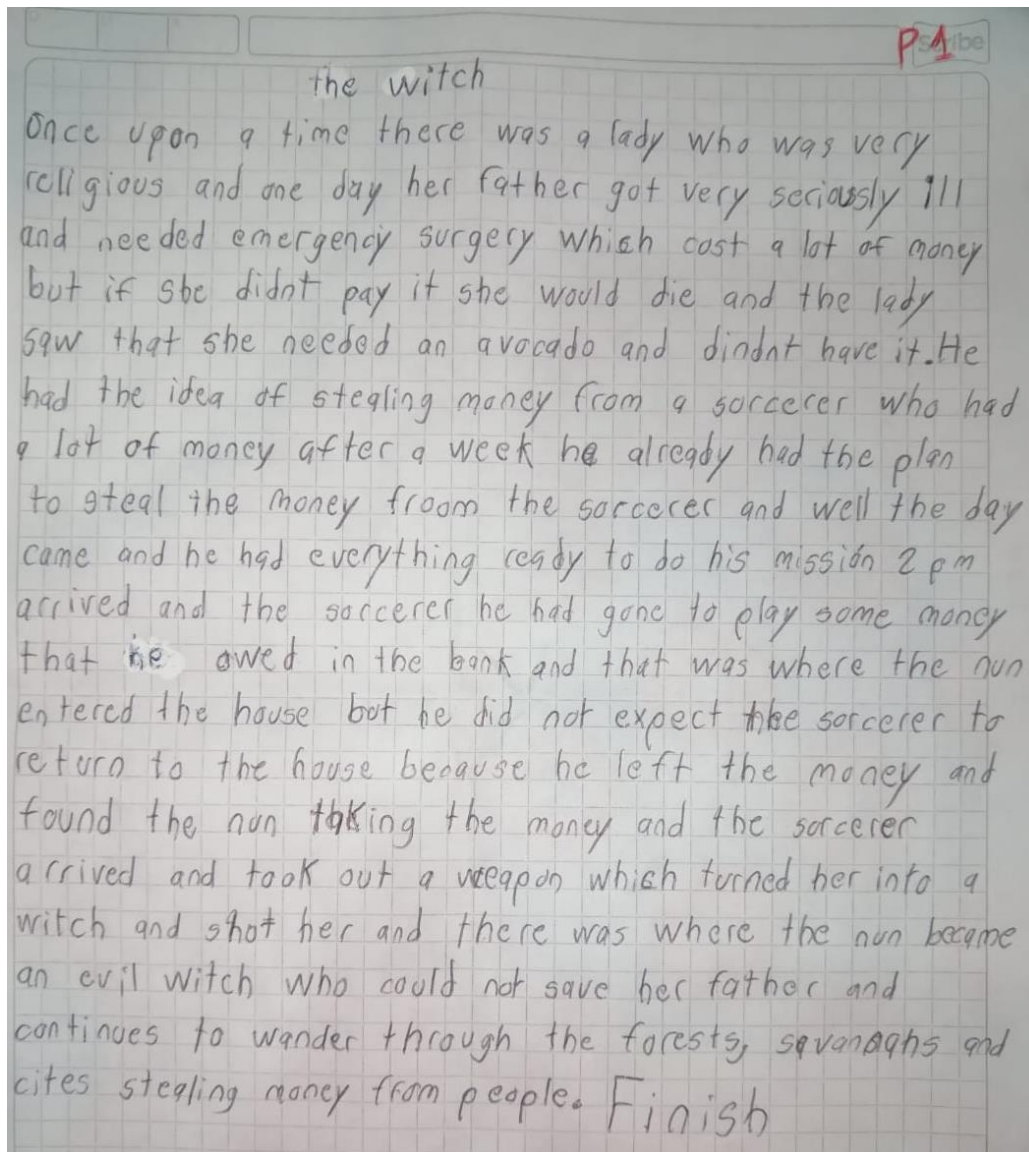 P1
the witch
Once upon a time there was a lady who was very
religious and one day her father got very seriously ill
and needed emergency surgery which cost a lot of money
but if she didnt pay it she would die and the lady
saw that she needed an avocado and dindnt have it. He
had the idea of stealing money from a sorcerer who had
a lot of money after a week he already had the plan
to steal the money froom the sorcerer and well the day
came and he had everything ready to do his missión 2 pm
arrived and the sorcerer he had gone to play some money
that he owed in the bank and that was where the nun
entered the house but he did not expect the sorcerer to
return to the house because he left the money and
found the nun taking the money and the sorcerer
arrived and took out a weapon which turned her into a
witch and shot her and there was where the nun became
an evil witch who could not save her father and
continues to wander through the forests, savanaghs and
cites stealing money from people. Finish